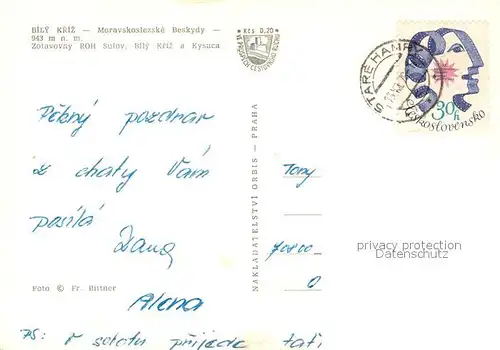 BÍLÝ KŘÍŽ — Moravskoslezské Beskydy —
943 m n. m.
Zotavovny ROH Sulov, Bílý Kříž a Kysuca
Kčs 0,20
VE PROSPĚCH CESTOVNÍHO RUCHU
STARÉ HAMRY
30h
Československo
Pěkný pozdrav
z chaty Vám
posílá
Jana
Alena
PS: V sobotu přijede tati
Tony
70800
0
NAKLADATELSTVÍ ORBIS — PRAHA
privacy protection
Datenschutz
Foto © Fr. Bittner